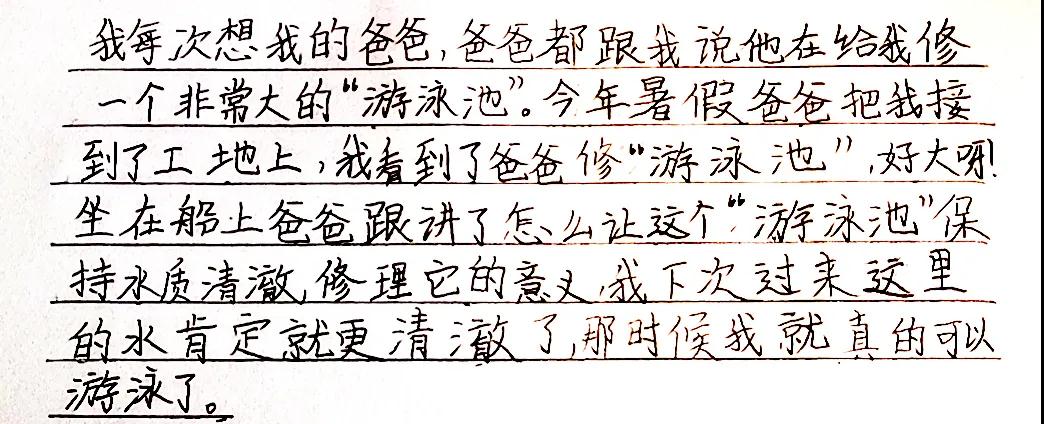 我每次想我的爸爸,爸爸都跟我说他在给我修
一个非常大的“游泳池”。今年暑假爸爸把我接
到了工地上,我看到了爸爸修“游泳池”,好大呀!
坐在船上爸爸跟讲了怎么让这个“游泳池”保
持水质清澈,修理它的意义,我下次过来这里
的水肯定就更清澈了,那时候我就真的可以
游泳了。